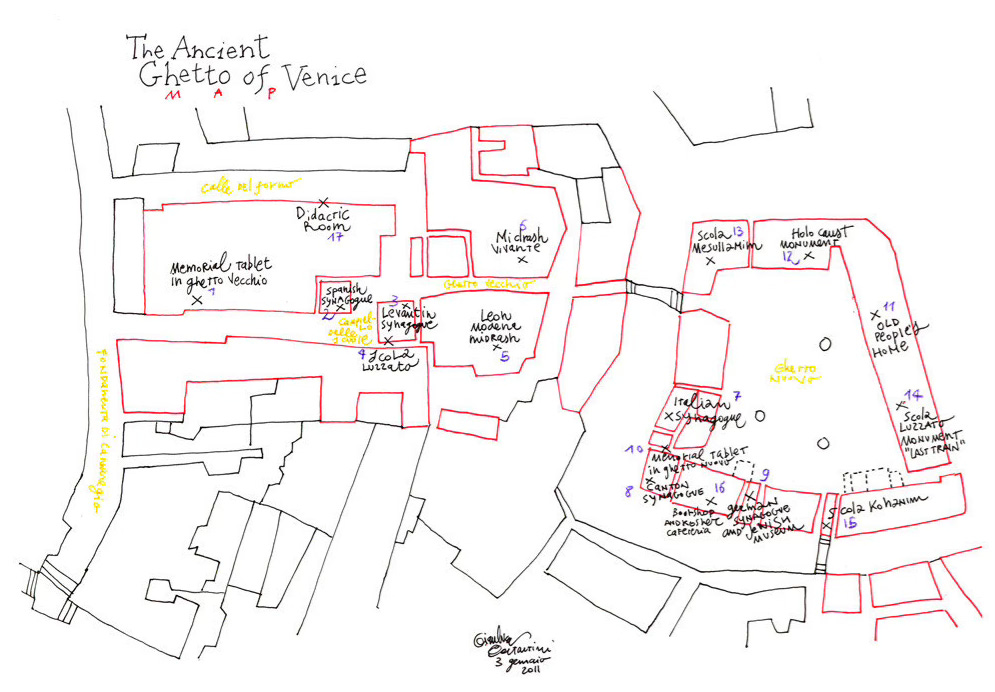 The Ancient
Ghetto of Venice
MAP
Calle del forno
Didactic
Room
17
Memorial Tablet
in ghetto Vecchio
1
Spanish
Synagogue
2
3
Levantin
Synagogue
Campiel-
lo
delle
Scole
4 Scola
Luzzato
6
Midrash
Vivante
Ghetto Vecchio
Leon
Modena
Midrash
5
Fondamenta di Cannaregio
Scola 13
Mesullamim
Holocaust
Monument
12
11
Old
People's
Home
Ghetto
Nuovo
14
Scola
Luzzato
Monument
"Last Train"
7
Italian
Synagogue
10
Memorial Tablet
in ghetto Nuovo
8
Canton
Synagogue
16
Bookshop
and Kosher
Cafeteria
9
German
Synagogue
and Jewish
Museum
Scola Kohanim
15
3 gennaio
2011